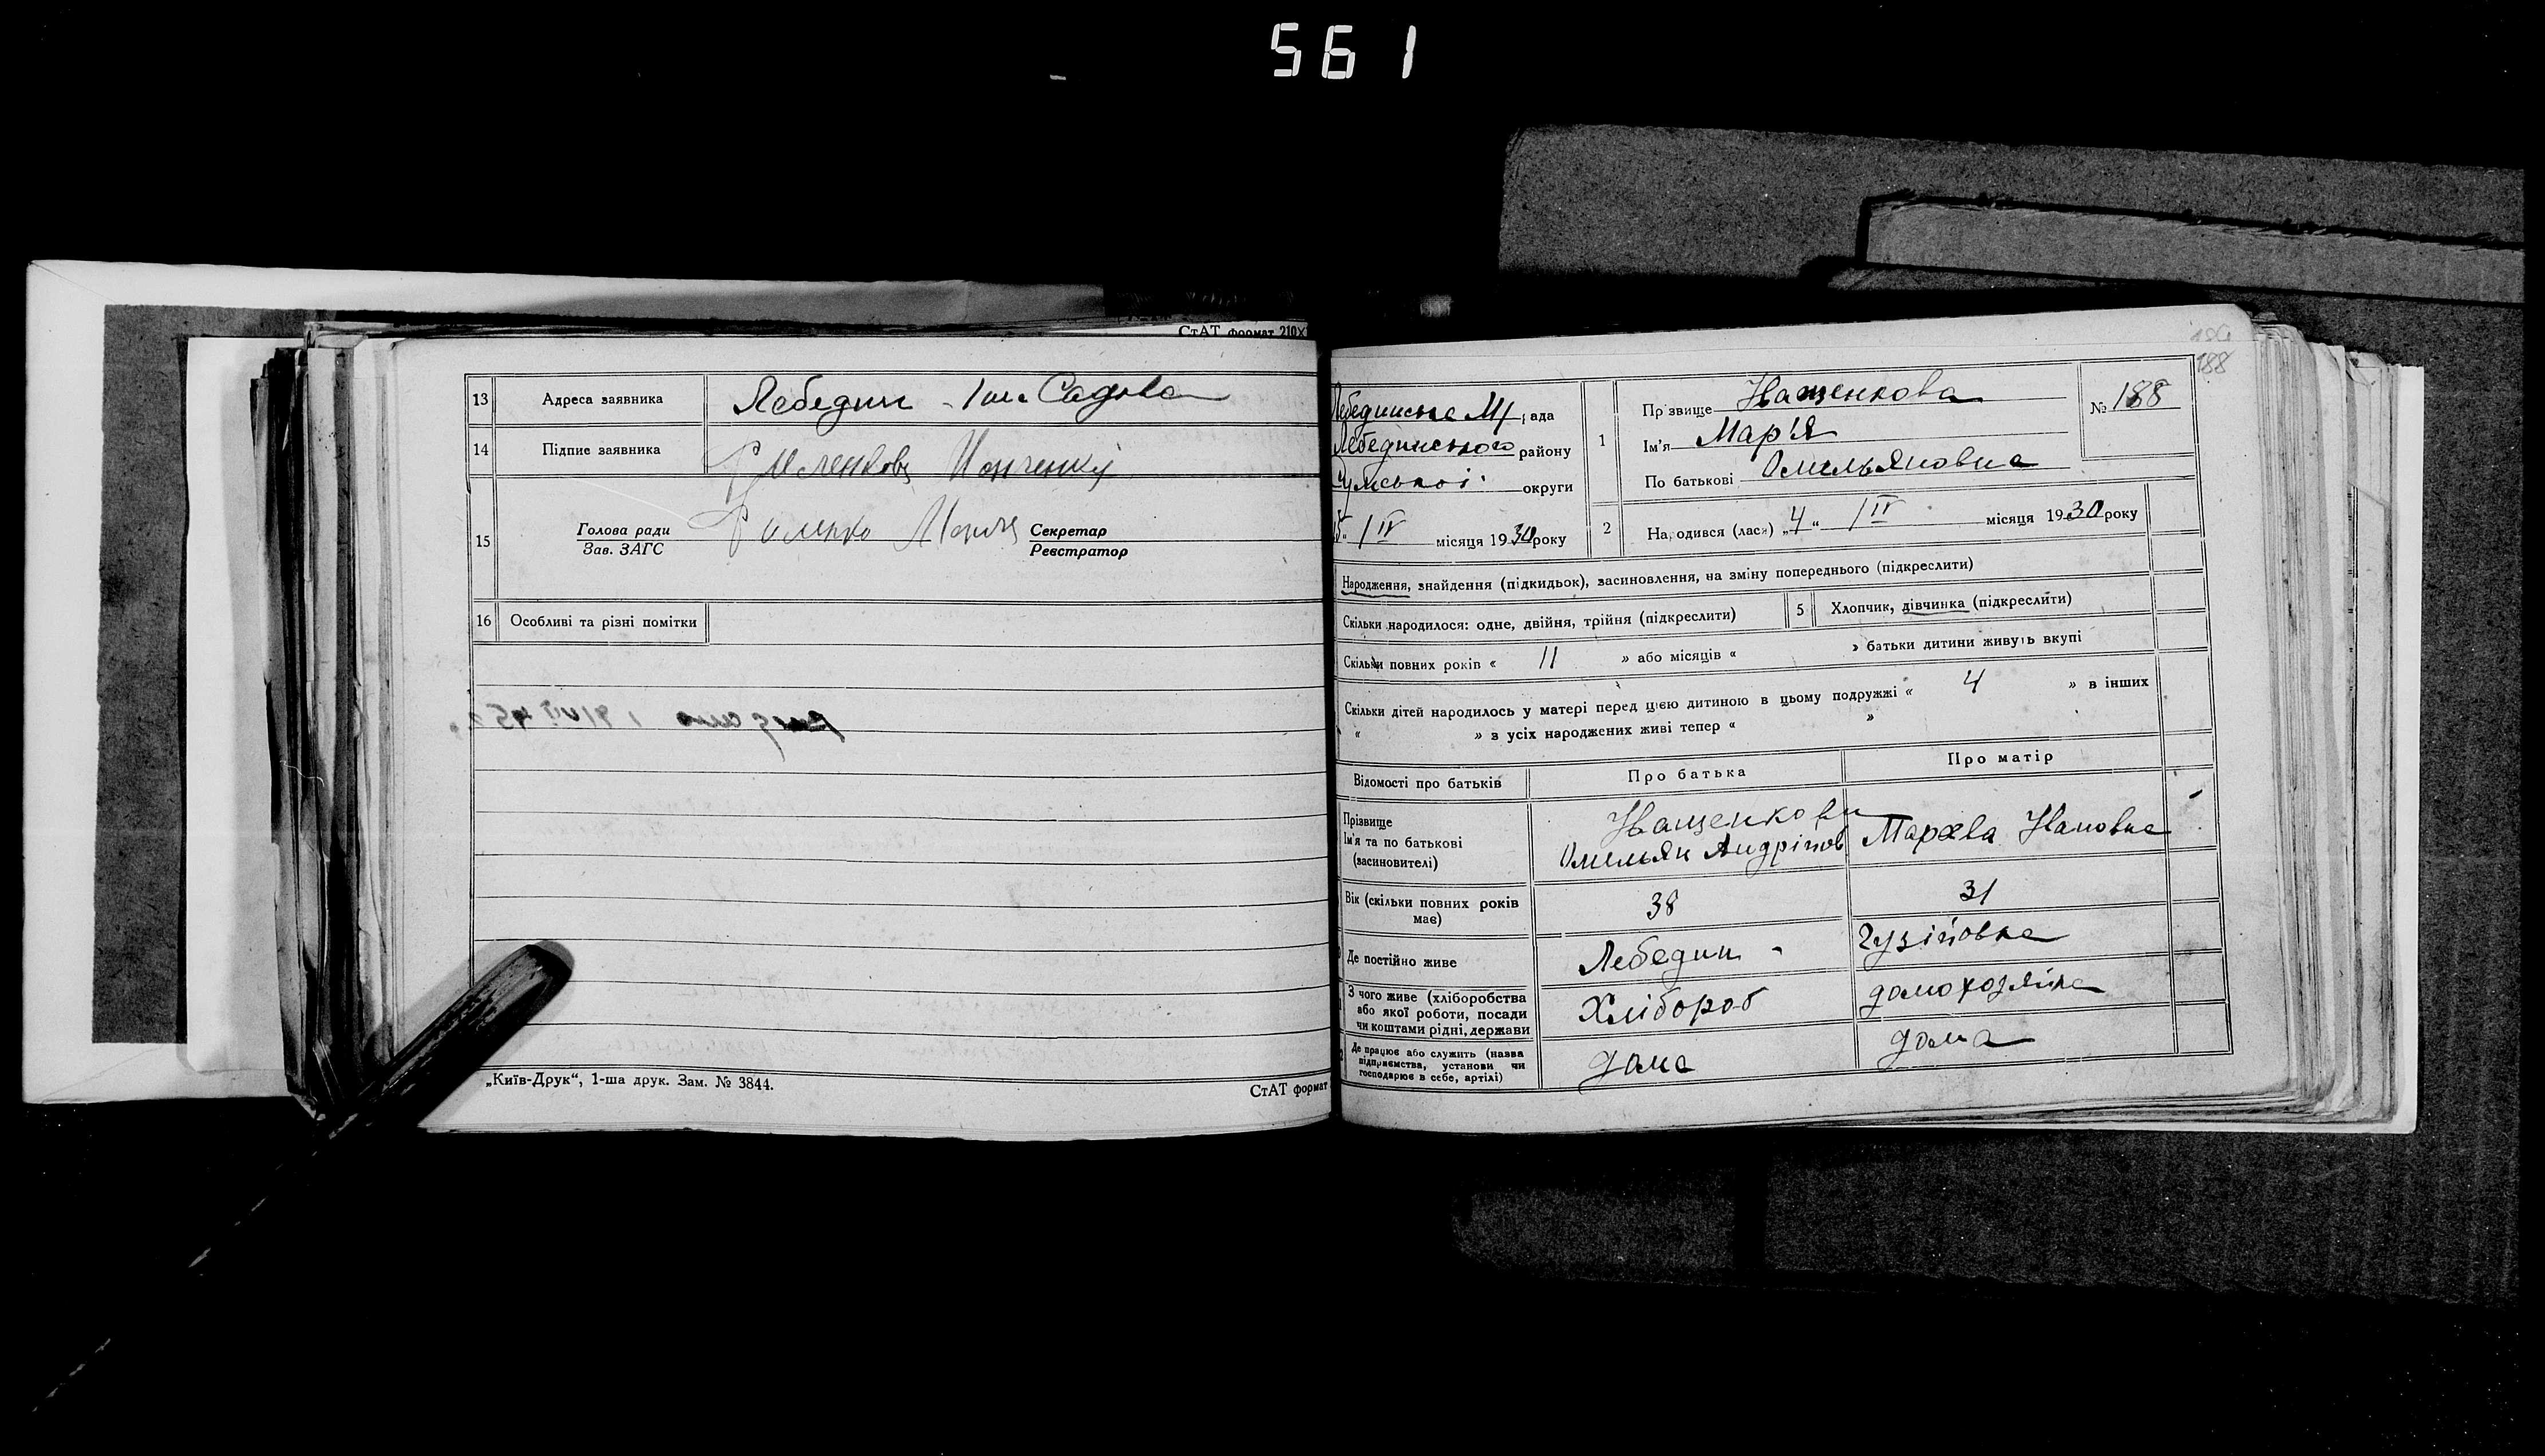 561
СтАТ формат 210X
13 Адреса заявника Лебедин Садова
14 Підпис заявника
15 Голова ради Секретар
Зав. ЗАГС Реєстратор
16 Особливі та різні помітки
„Київ-Друк“, 1-ша друк. Зам. № 3844.
СтАТ формат
188
ада
Лебединського району
Сумської округи
IV місяця 1930 року
1 Прізвище Іващенкова
Ім'я Мар'я
По батькові Омильяновна
№ 188
2 Народився (лася) „4“ IV місяця 1930 року
Народження, знайдення (підкидьок), васиновлення, на зміну попереднього (підкреслити)
Скільки народилося: одне, двійня, трійня (підкреслити) 5 Хлопчик, дівчинка (підкреслити)
Скільки повних років « 11 » або місяців « » батьки дитини живуть вкупі
Скільки дітей народилось у матері перед цією дитиною в цьому подружжі « 4 » в інших
« » з усіх народжених живі тепер « »
Відомості про батьків Про батька Про матір
Прізвище Іващенкови
Ім'я та по батькові Омильян Андрійов Ивановна
(васиновителі)
Вік (скільки повних років має) 38 31
Де постійно живе Лебедин
З чого живе (хліборобства
або якої роботи, посади Хлібороб домохозяйка
чи коштами рідні, держави
Де працює або служить (назва
підприємства, установи чи дома дома
господарює в себе, артілі)